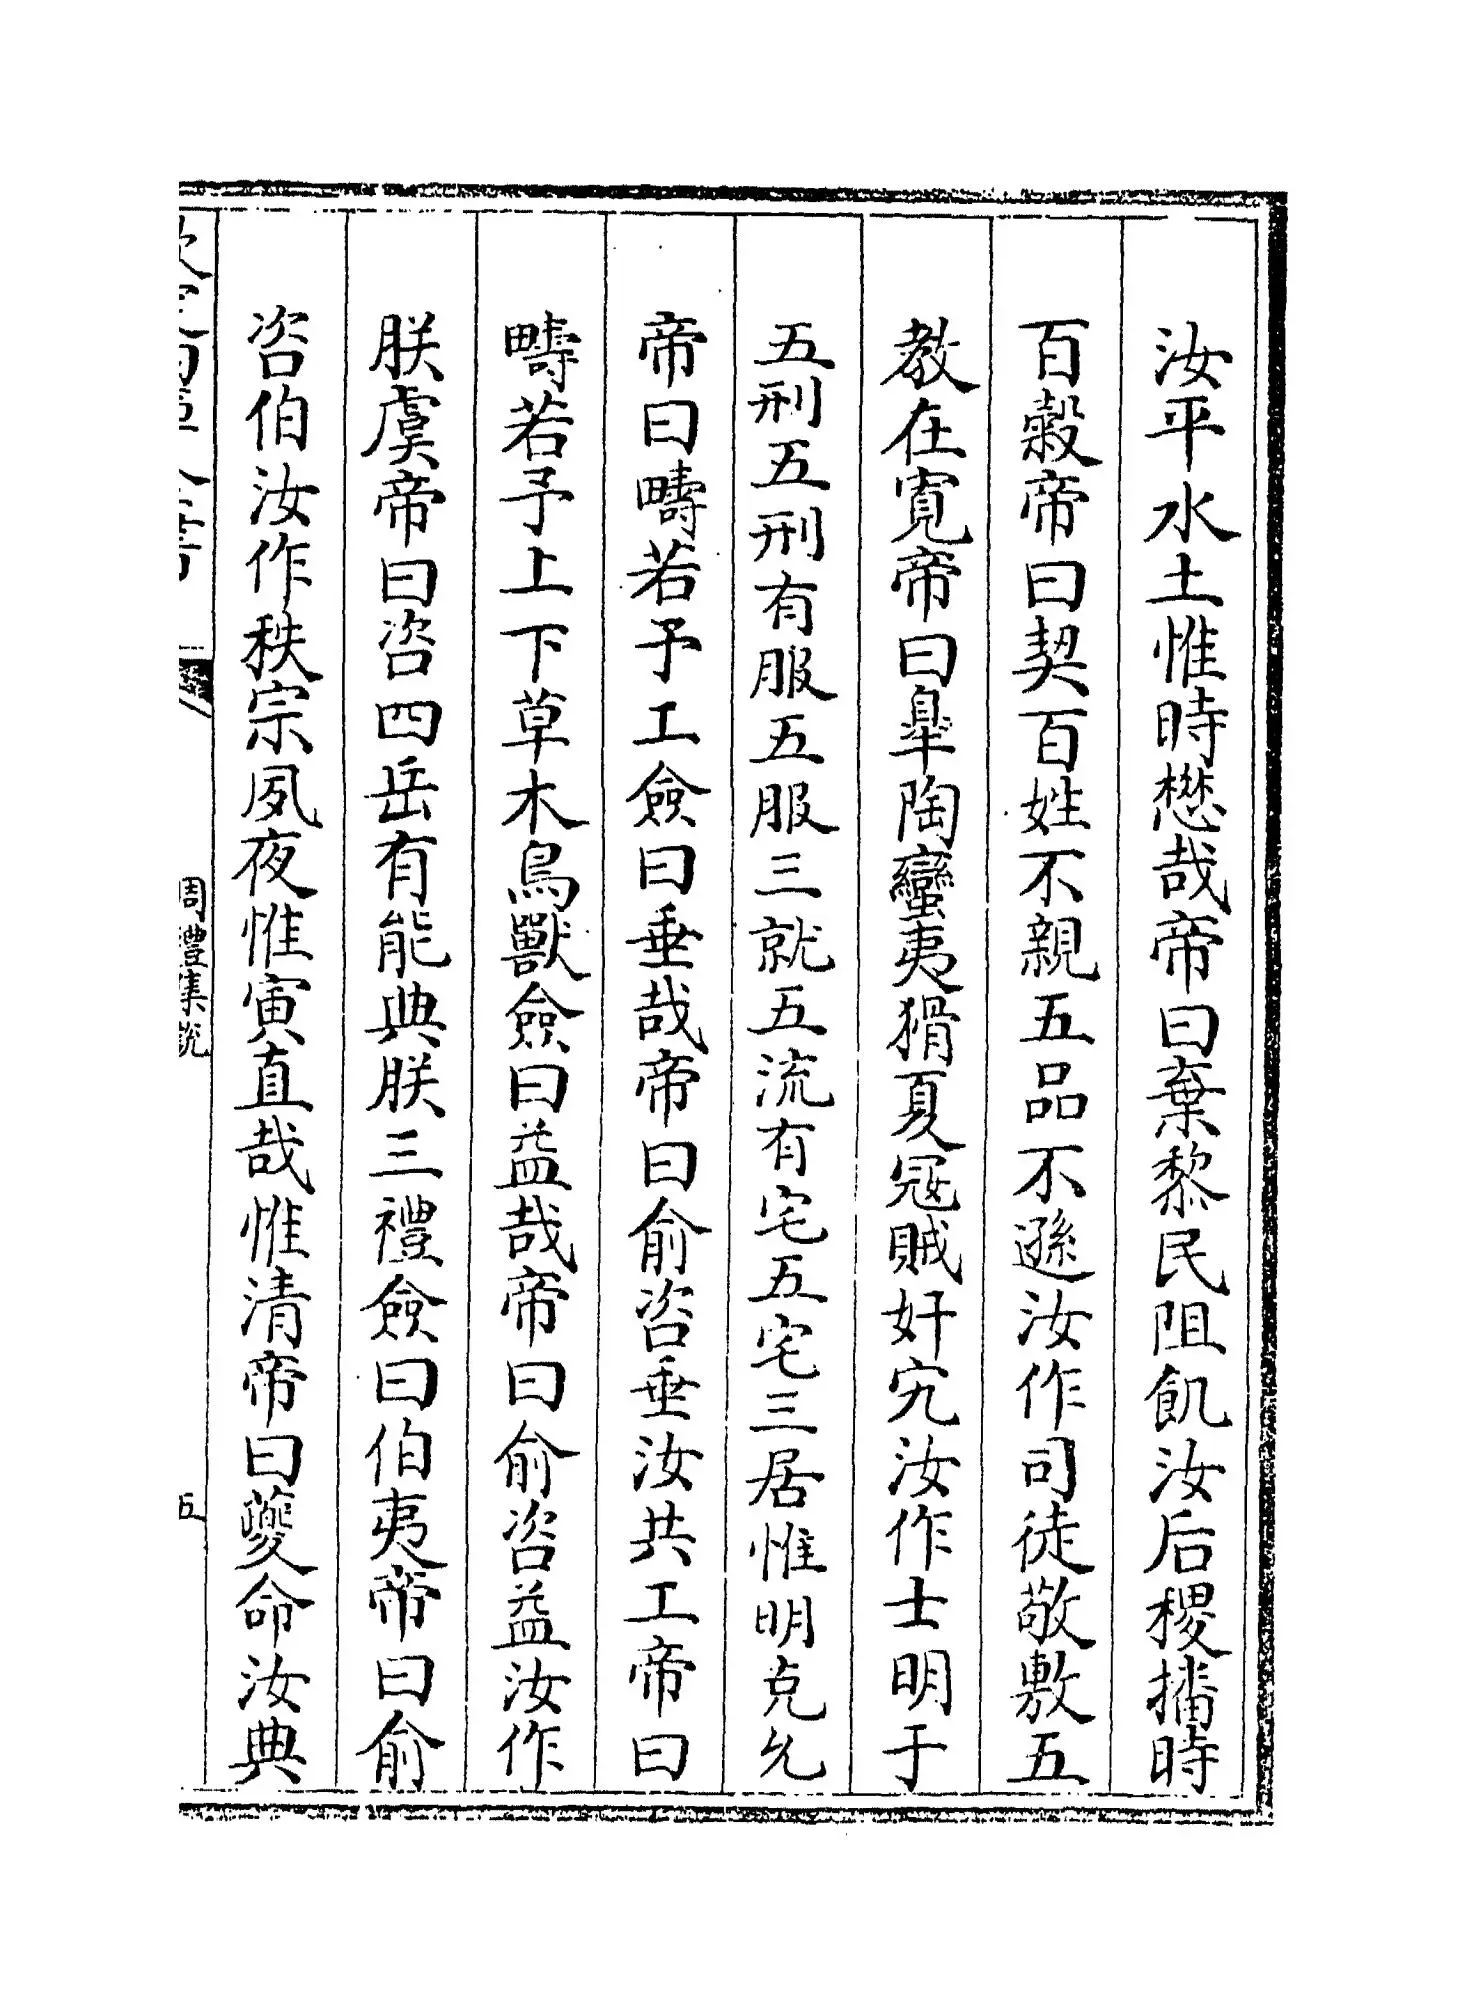 汝平水土惟時懋哉帝曰棄黎民阻飢汝后稷播時
百穀帝曰契百姓不親五品不遜汝作司徒敬敷五
教在寛帝曰臯陶蠻夷猾夏冦賊奸宄汝作士明于
五刑五刑有服五服三就五流有宅五宅三居惟明克允
帝曰疇若予工僉曰垂哉帝曰俞咨垂汝共工帝曰
疇若予上下草木鳥獸僉曰益哉帝曰俞咨益汝作
朕虞帝曰咨四岳有能典朕三禮僉曰伯夷帝曰俞
咨伯汝作秩宗夙夜惟寅直哉惟清帝曰夔命汝典
周禮集說
五